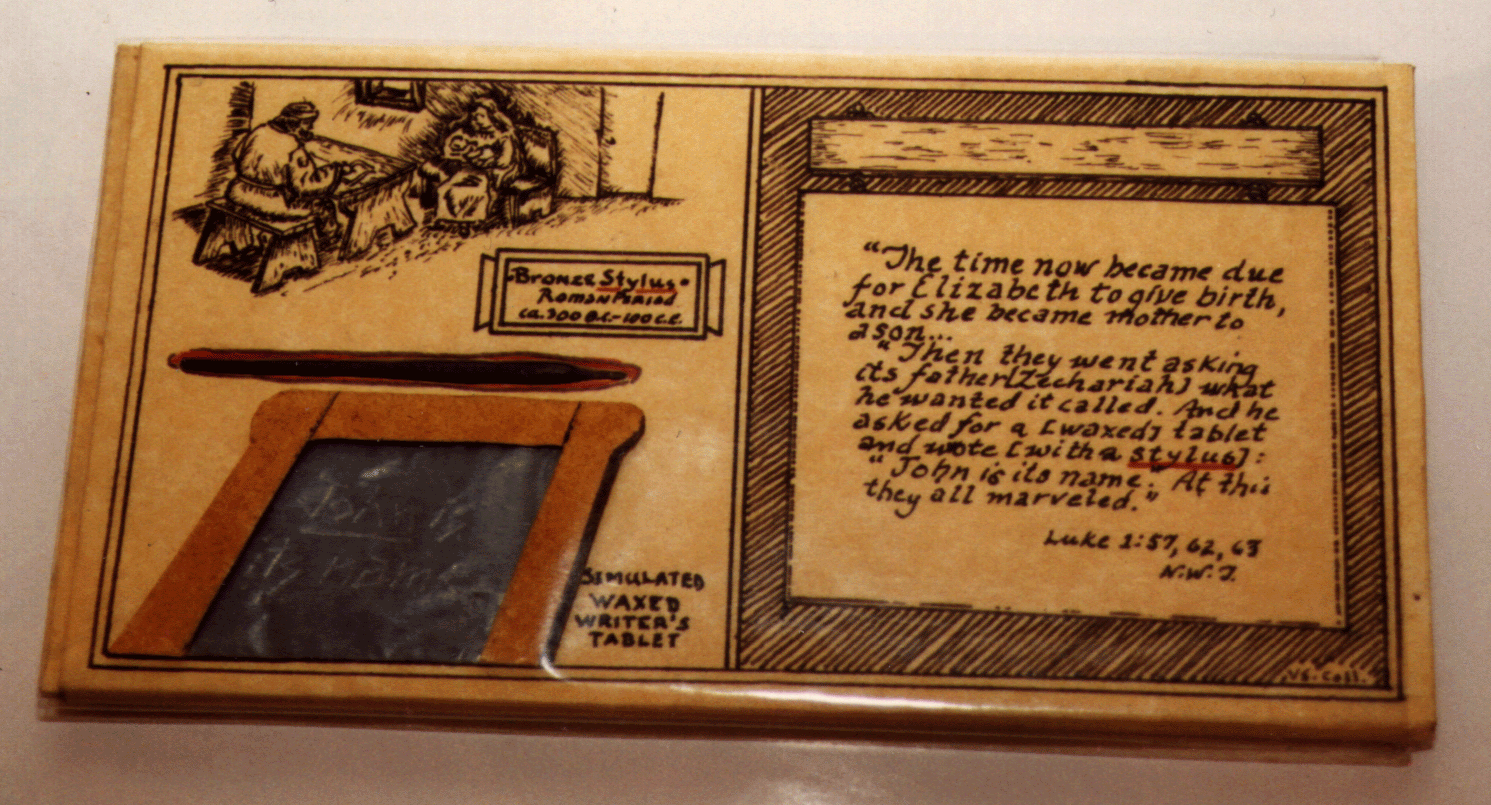 "Bronze Stylus"
Roman Period
ca. 300 B.C.-100 C.E.
John is
its name
SIMULATED
WAXED
WRITER'S
TABLET
"The time now became due
for Elizabeth to give birth,
and she became mother to
a son...
"Then they went asking
its father [Zechariah] what
he wanted it called. And he
asked for a [waxed] tablet
and wrote [with a stylus]:
"John is its name. At this
they all marveled."
Luke 1:57, 62, 63
N.W.T.